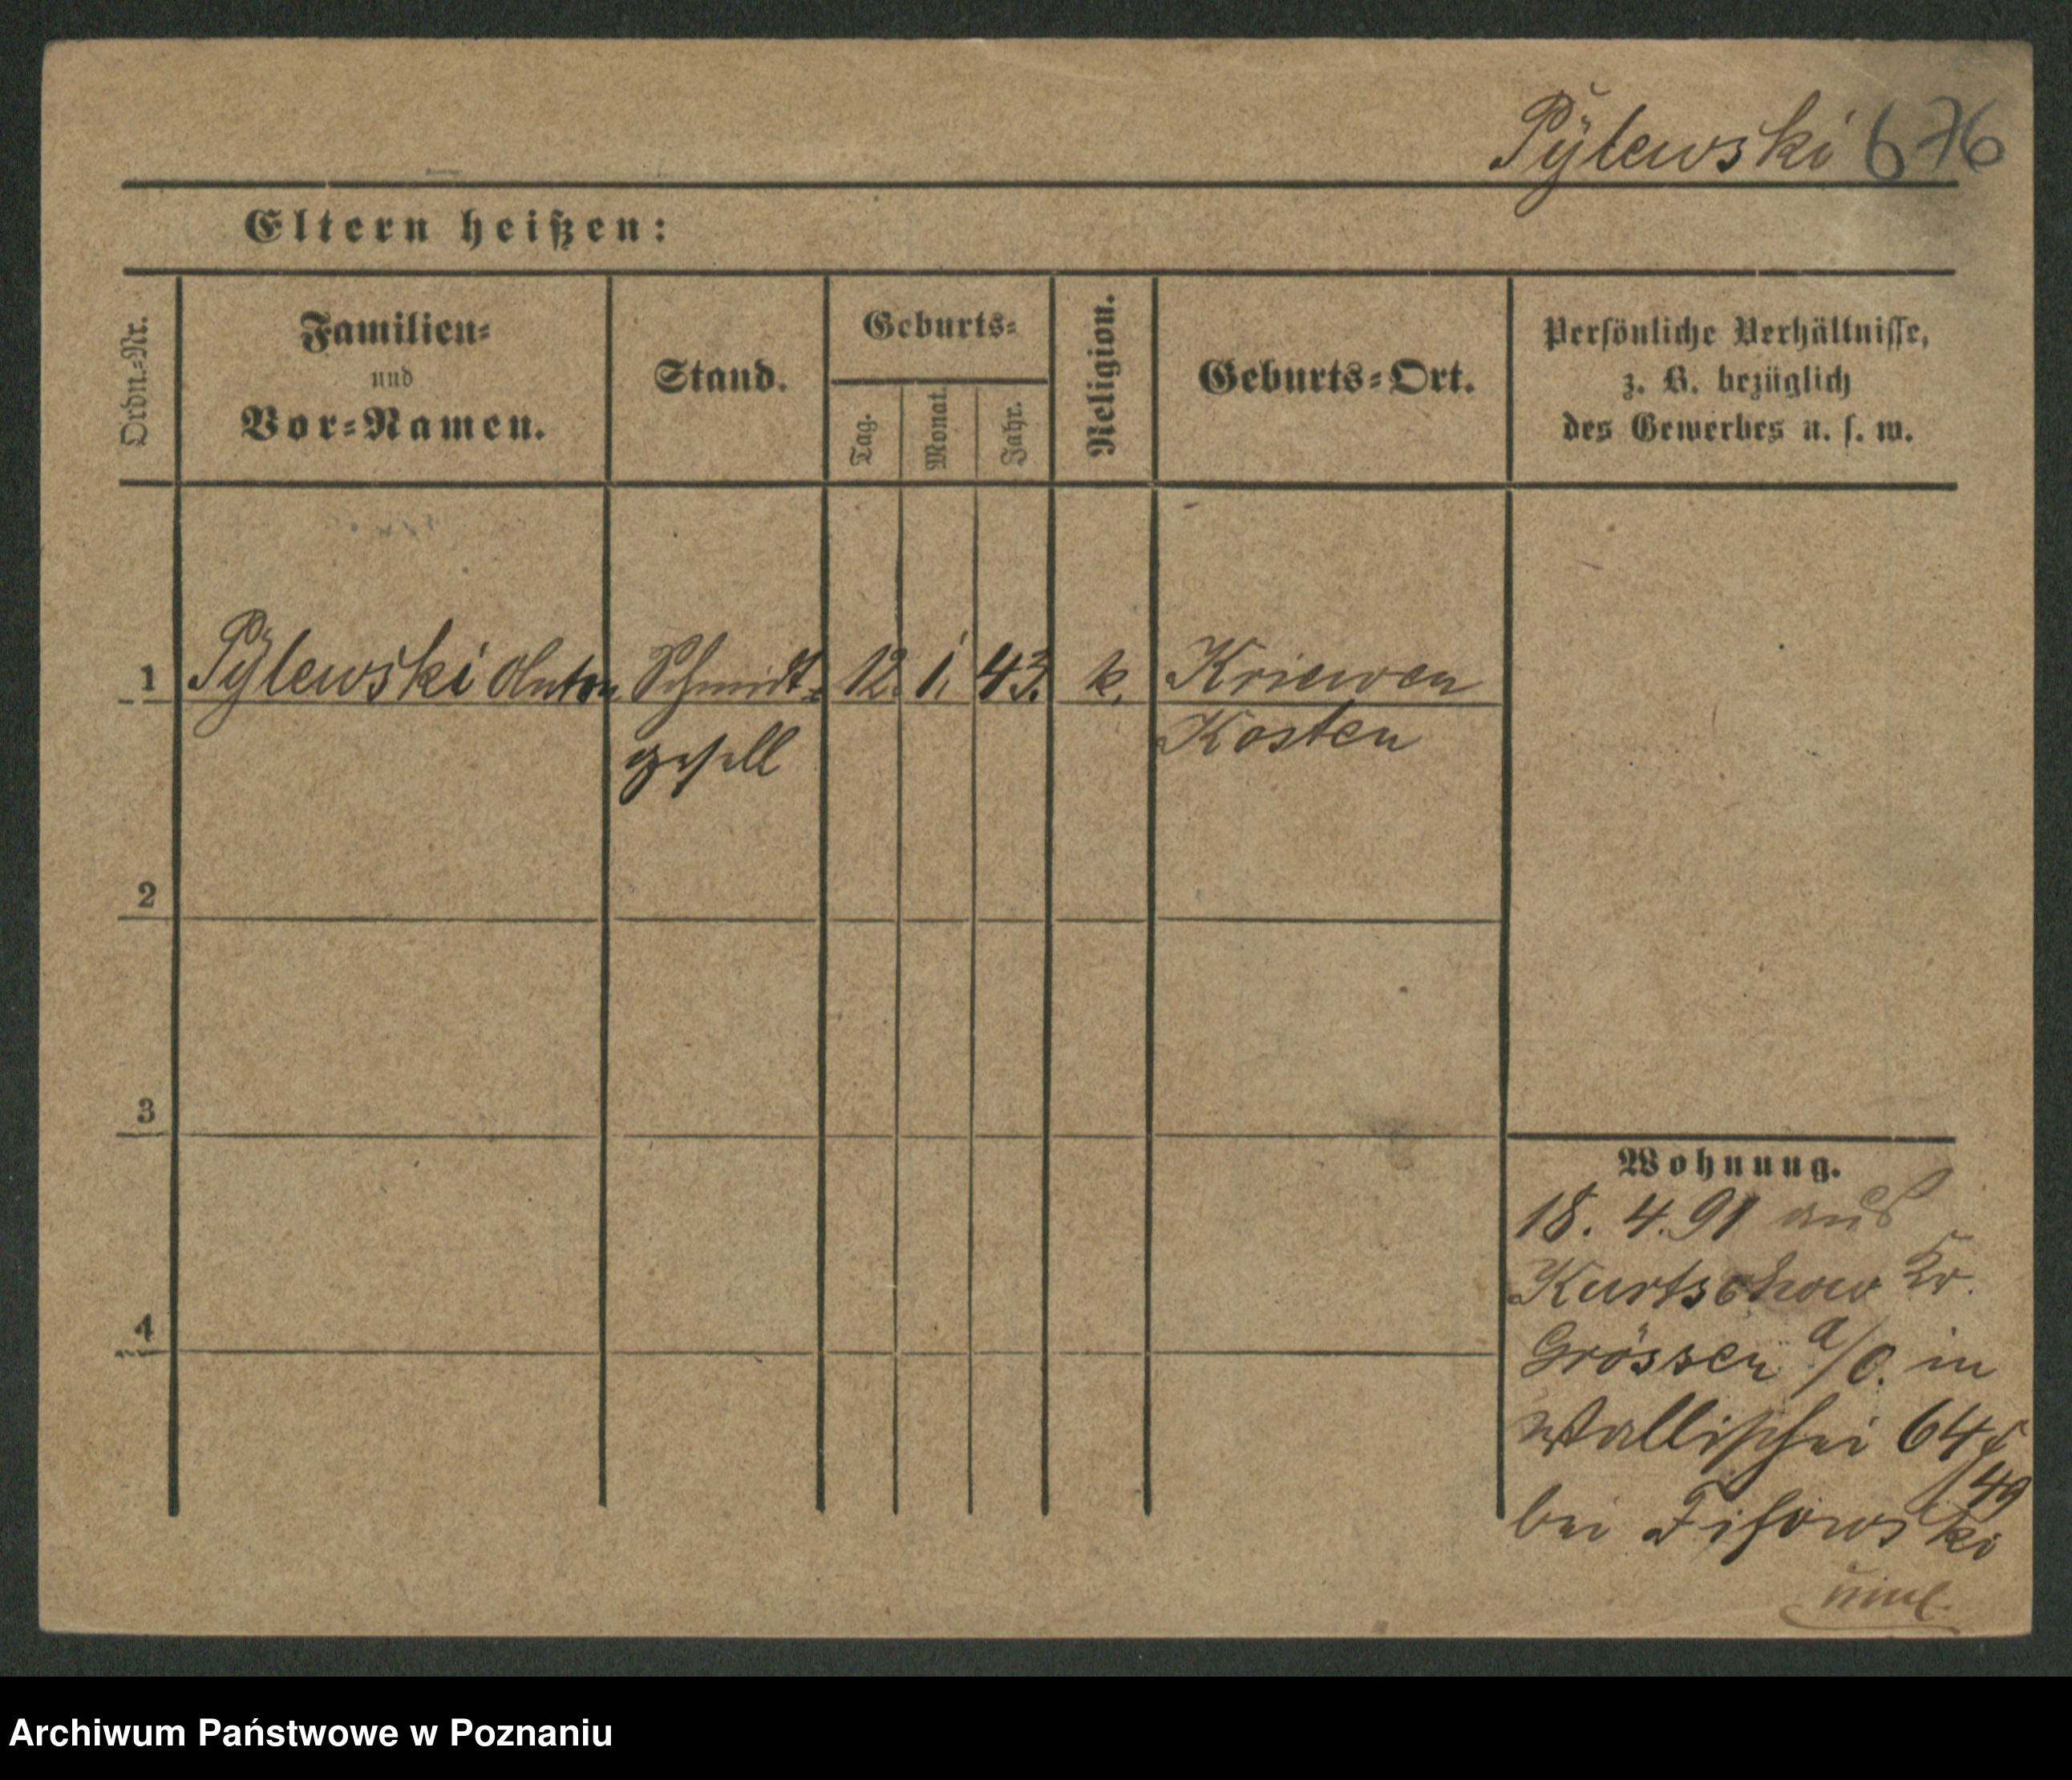 Pÿlewski 676
Eltern heißen:
Ordn.-Nr.
Familien-
und
Vor-Namen.
Stand.
Geburts-
Tag.
Monat.
Jahr.
Religion.
Geburts-Ort.
Persönliche Verhältnisse,
z. B. bezüglich
des Gewerbes u. s. w.
1 Pÿlewski Anton Schmidt- 12. 1. 43. k. Kriewen
gesell Kosten
2
3
4
Wohnung.
18. 4. 91 aus
Kurtschow Kr.
Grössen a/O. in
Wallischei 64
/49
bei
Archiwum Państwowe w Poznaniu